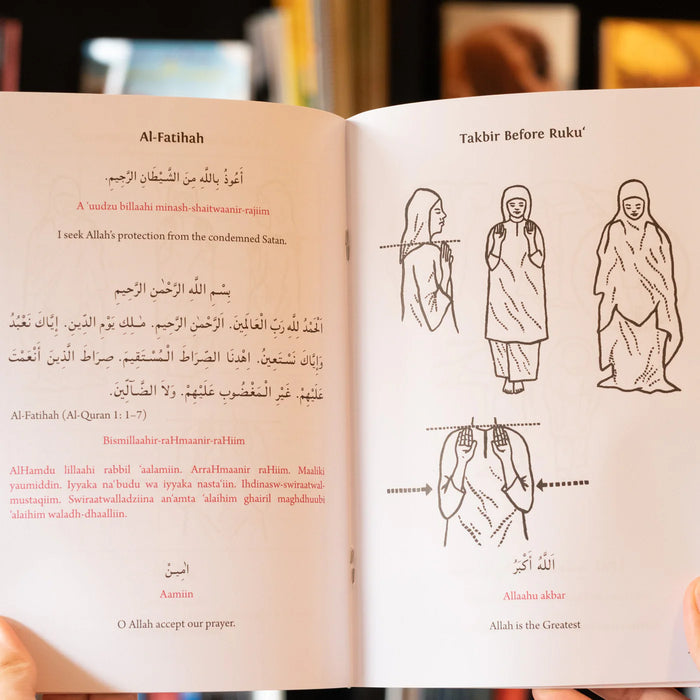 Al-Fatihah
أَعُوذُ بِاللَّهِ مِنَ الشَّيْطَانِ الرَّجِيمِ.
A ‘uudzu billaahi minash-shaitwaanir-rajiim
I seek Allah’s protection from the condemned Satan.
بِسْمِ اللَّهِ الرَّحْمٰنِ الرَّحِيمِ
اَلْحَمْدُ لِلَّهِ رَبِّ الْعَالَمِينَ. الرَّحْمٰنِ الرَّحِيمِ. مٰلِكِ يَوْمِ الدِّينِ. إِيَّاكَ نَعْبُدُ
وَإِيَّاكَ نَسْتَعِينُ. اِهْدِنَا الصِّرَاطَ الْمُسْتَقِيمَ. صِرَاطَ الَّذِينَ أَنْعَمْتَ
عَلَيْهِمْ. غَيْرِ الْمَغْضُوبِ عَلَيْهِمْ. وَلاَ الضَّآلِّينَ.
Al-Fatihah (Al-Quran 1: 1–7)
Bismillaahir-raHmaanir-raHiim
AlHamdu lillaahi rabbil ‘aalamiin. ArraHmaanir raHiim. Maaliki
yaumiddin. Iyyaka na‘budu wa iyyaka nasta‘iin. Ihdinasw-swiraatwal-
mustaqiim. Swiraatwalladziina an‘amta ‘alaihim ghairil maghdhuubi
‘alaihim waladh-dhaalliin.
اٰمِيـنْ
Aamiin
O Allah accept our prayer.
Takbir Before Ruku‘
اَللَّهُ أَكْبَرُ
Allaahu akbar
Allah is the Greatest